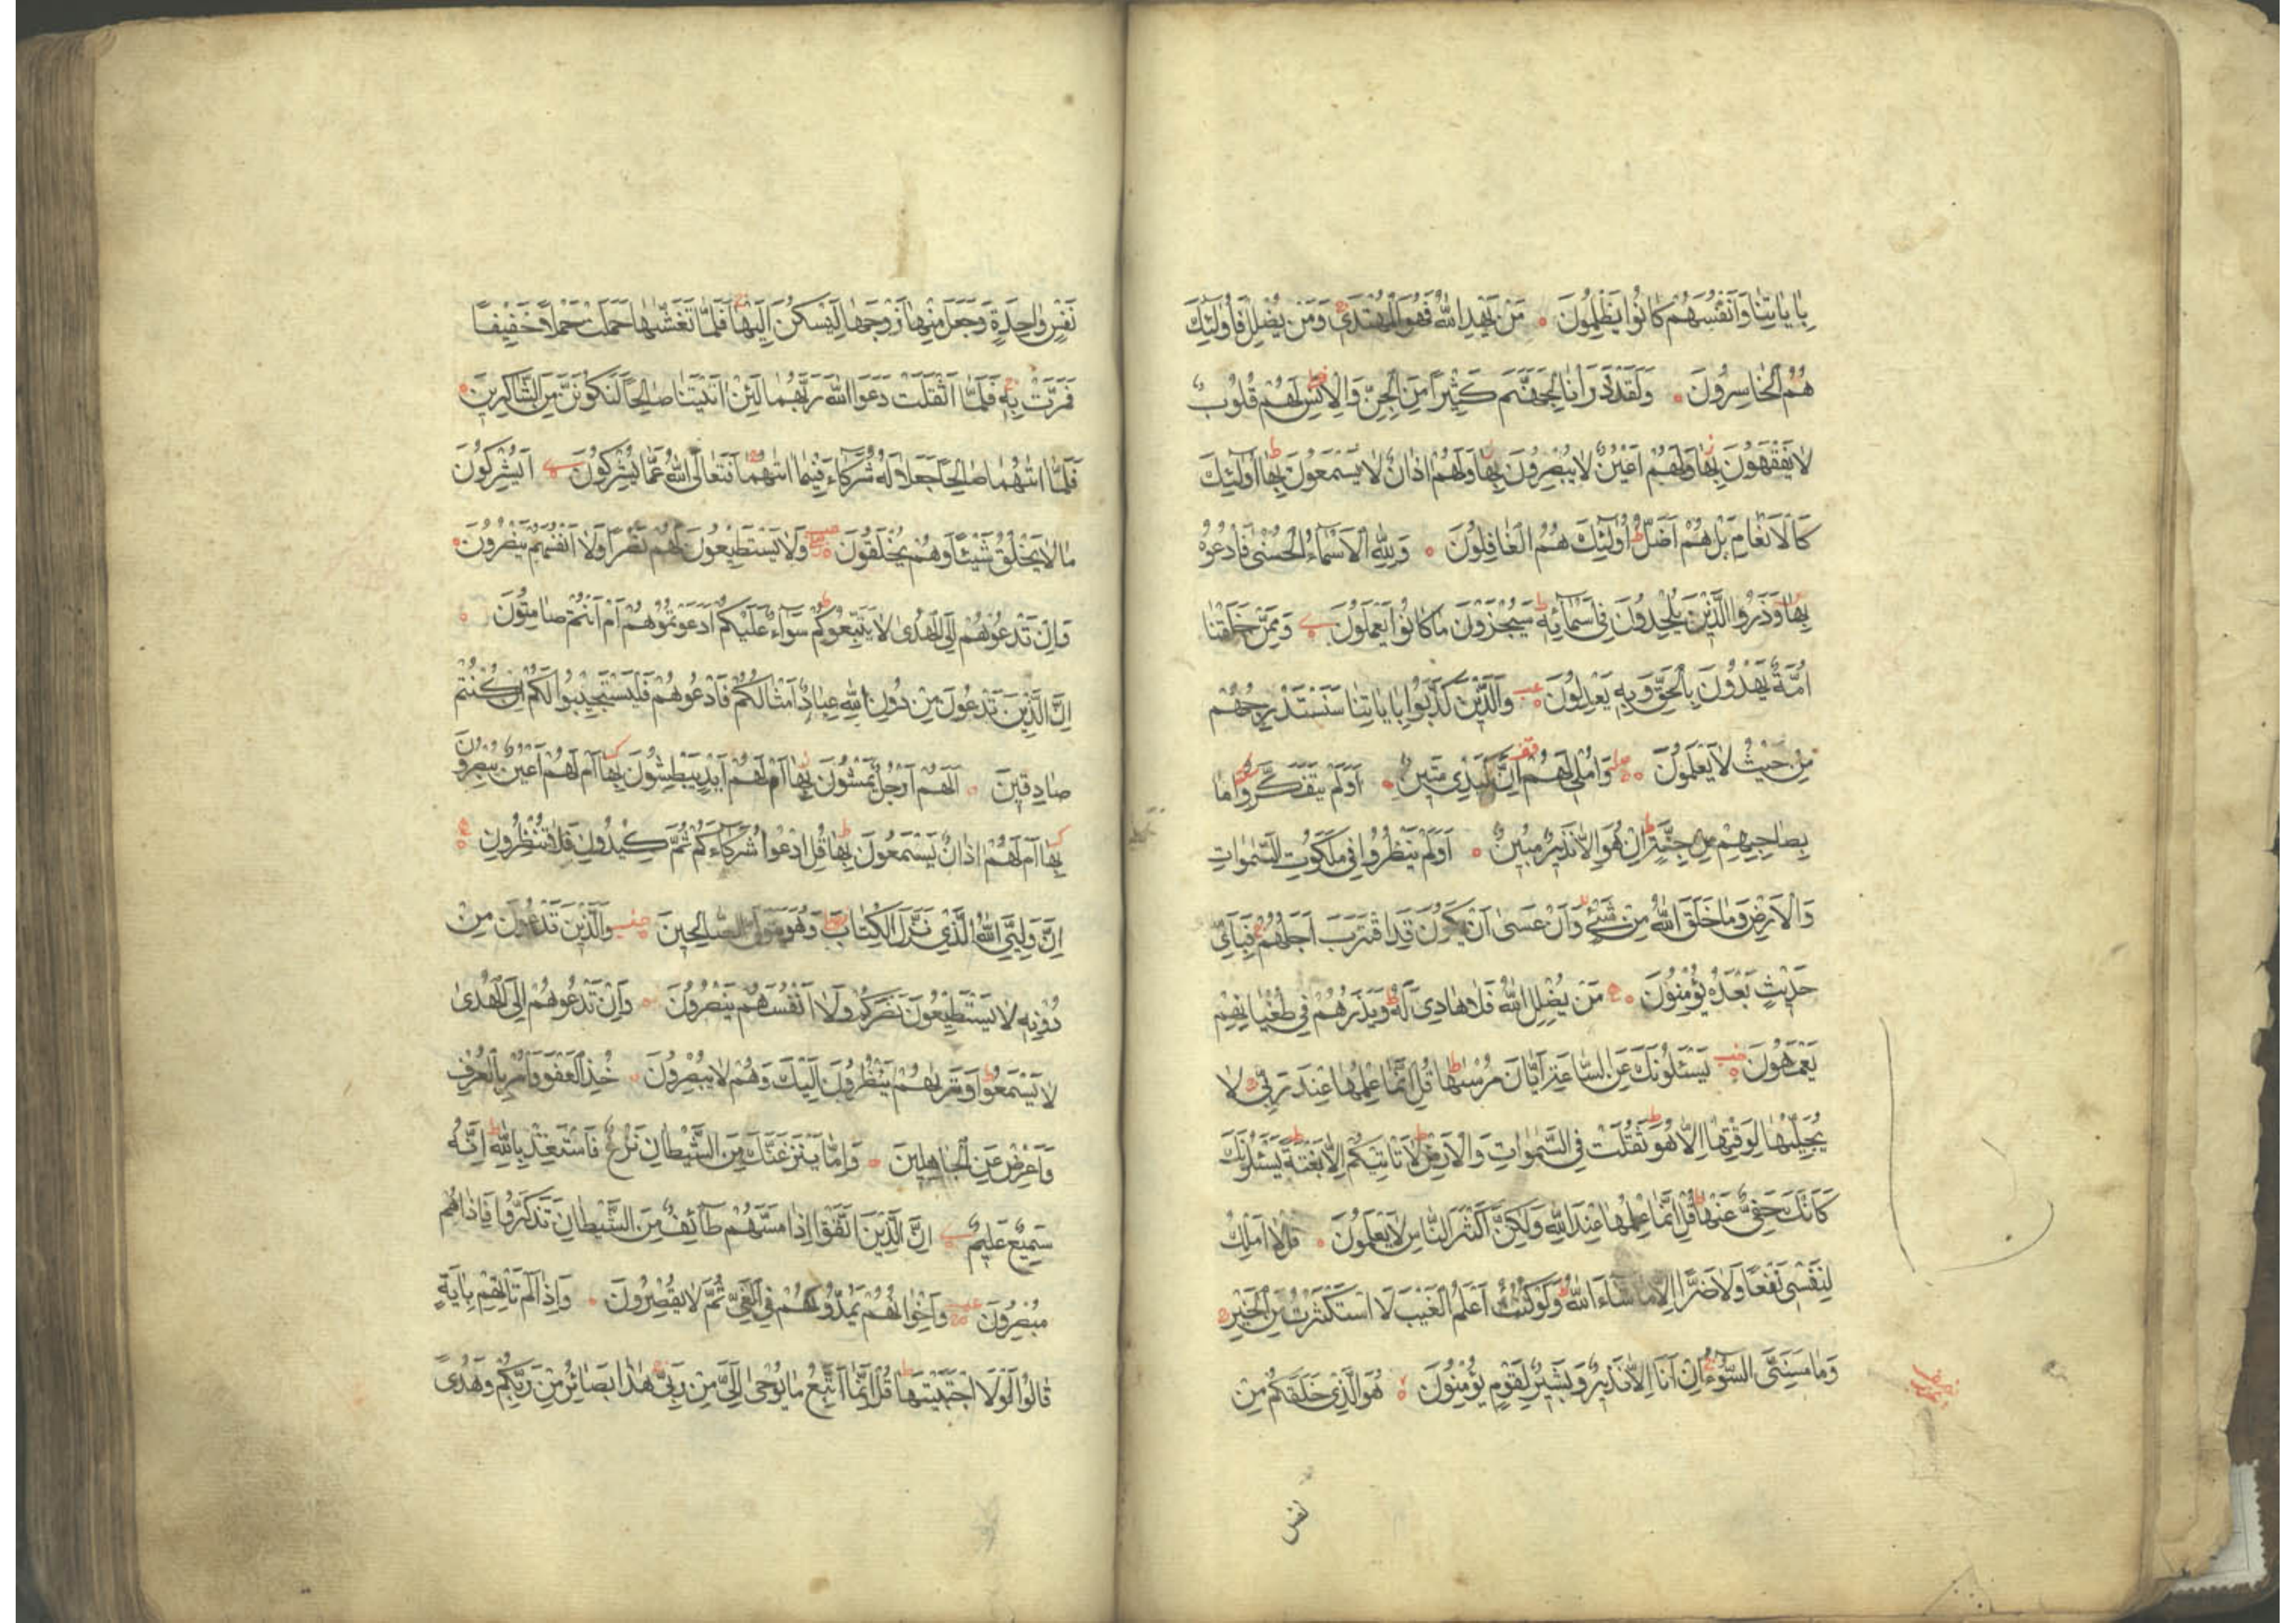 بِاٰيَاتِنَا وَاَنْفُسَهُمْ كَانُوا يَظْلِمُونَ ۝ مَنْ يَهْدِ اللّٰهُ فَهُوَ الْمُهْتَدِيْ وَمَنْ يُضْلِلْ فَاُولٰئِكَ
هُمُ الْخَاسِرُونَ ۝ وَلَقَدْ ذَرَاْنَا لِجَهَنَّمَ كَثِيْرًا مِنَ الْجِنِّ وَالْاِنْسِ لَهُمْ قُلُوبٌ
لَا يَفْقَهُونَ بِهَا وَلَهُمْ اَعْيُنٌ لَا يُبْصِرُونَ بِهَا وَلَهُمْ اٰذَانٌ لَا يَسْمَعُونَ بِهَا اُولٰئِكَ
كَالْاَنْعَامِ بَلْ هُمْ اَضَلُّ اُولٰئِكَ هُمُ الْغَافِلُونَ ۝ وَلِلّٰهِ الْاَسْمَاءُ الْحُسْنٰى فَادْعُوهُ
بِهَا وَذَرُوا الَّذِيْنَ يُلْحِدُونَ فِى اَسْمَائِهِ سَيُجْزَوْنَ مَا كَانُوا يَعْمَلُونَ وَمِمَّنْ خَلَقْنَا
اُمَّةٌ يَهْدُوْنَ بِالْحَقِّ وَبِهِ يَعْدِلُونَ وَالَّذِيْنَ كَذَّبُوا بِاٰيَاتِنَا سَنَسْتَدْرِجُهُمْ
مِنْ حَيْثُ لَا يَعْلَمُونَ ۝ وَاُمْلِى لَهُمْ اِنَّ كَيْدِى مَتِيْنٌ ۝ اَوَلَمْ يَتَفَكَّرُوا مَا
بِصَاحِبِهِمْ مِنْ جِنَّةٍ اِنْ هُوَ اِلَّا نَذِيْرٌ مُبِيْنٌ ۝ اَوَلَمْ يَنْظُرُوا فِى مَلَكُوتِ السَّمٰوَاتِ
وَالْاَرْضِ وَمَا خَلَقَ اللّٰهُ مِنْ شَيْءٍ وَاَنْ عَسٰى اَنْ يَكُوْنَ قَدِ اقْتَرَبَ اَجَلُهُمْ فَبِاَىِّ
حَدِيْثٍ بَعْدَهُ يُؤْمِنُوْنَ ۝ مَنْ يُضْلِلِ اللّٰهُ فَلَا هَادِىَ لَهُ وَيَذَرُهُمْ فِى طُغْيَانِهِمْ
يَعْمَهُونَ يَسْئَلُونَكَ عَنِ السَّاعَةِ اَيَّانَ مُرْسٰيهَا قُلْ اِنَّمَا عِلْمُهَا عِنْدَ رَبِّى لَا
يُجَلِّيهَا لِوَقْتِهَا اِلَّا هُوَ ثَقُلَتْ فِى السَّمٰوَاتِ وَالْاَرْضِ لَا تَاْتِيْكُمْ اِلَّا بَغْتَةً يَسْئَلُونَكَ
كَاَنَّكَ حَفِىٌّ عَنْهَا قُلْ اِنَّمَا عِلْمُهَا عِنْدَ اللّٰهِ وَلٰكِنَّ اَكْثَرَ النَّاسِ لَا يَعْلَمُونَ ۝ قُلْ لَا اَمْلِكُ
لِنَفْسِى نَفْعًا وَلَا ضَرًّا اِلَّا مَا شَاءَ اللّٰهُ وَلَوْ كُنْتُ اَعْلَمُ الْغَيْبَ لَا اسْتَكْثَرْتُ مِنَ الْخَيْرِ
وَمَا مَسَّنِىَ السُّوْءُ اِنْ اَنَا اِلَّا نَذِيْرٌ وَبَشِيْرٌ لِقَوْمٍ يُؤْمِنُوْنَ ۝ هُوَ الَّذِى خَلَقَكُمْ مِنْ
نفس
نَفْسٍ وَاحِدَةٍ وَجَعَلَ مِنْهَا زَوْجَهَا لِيَسْكُنَ اِلَيْهَا فَلَمَّا تَغَشّٰيهَا حَمَلَتْ حَمْلًا خَفِيْفًا
فَمَرَّتْ بِهِ فَلَمَّا اَثْقَلَتْ دَعَوَا اللّٰهَ رَبَّهُمَا لَئِنْ اٰتَيْتَنَا صَالِحًا لَنَكُوْنَنَّ مِنَ الشَّاكِرِيْنَ ۝
فَلَمَّا اٰتٰيهُمَا صَالِحًا جَعَلَا لَهُ شُرَكَاءَ فِيْمَا اٰتٰيهُمَا فَتَعَالَى اللّٰهُ عَمَّا يُشْرِكُوْنَ اَيُشْرِكُوْنَ
مَا لَا يَخْلُقُ شَيْئًا وَهُمْ يُخْلَقُوْنَ وَلَا يَسْتَطِيْعُونَ لَهُمْ نَصْرًا وَلَا اَنْفُسَهُمْ يَنْصُرُوْنَ ۝
وَاِنْ تَدْعُوْهُمْ اِلَى الْهُدٰى لَا يَتَّبِعُوكُمْ سَوَاءٌ عَلَيْكُمْ اَدَعَوْتُمُوْهُمْ اَمْ اَنْتُمْ صَامِتُوْنَ ۝
اِنَّ الَّذِيْنَ تَدْعُوْنَ مِنْ دُوْنِ اللّٰهِ عِبَادٌ اَمْثَالُكُمْ فَادْعُوْهُمْ فَلْيَسْتَجِيْبُوا لَكُمْ اِنْ كُنْتُمْ
صَادِقِيْنَ ۝ اَلَهُمْ اَرْجُلٌ يَمْشُوْنَ بِهَا اَمْ لَهُمْ اَيْدٍ يَبْطِشُوْنَ بِهَا اَمْ لَهُمْ اَعْيُنٌ يُبْصِرُوْنَ
بِهَا اَمْ لَهُمْ اٰذَانٌ يَسْمَعُوْنَ بِهَا قُلِ ادْعُوا شُرَكَاءَكُمْ ثُمَّ كِيْدُوْنِ فَلَا تُنْظِرُوْنِ ۝
اِنَّ وَلِيِّىَ اللّٰهُ الَّذِىْ نَزَّلَ الْكِتَابَ وَهُوَ يَتَوَلَّى الصَّالِحِيْنَ وَالَّذِيْنَ تَدْعُوْنَ مِنْ
دُوْنِهِ لَا يَسْتَطِيْعُوْنَ نَصْرَكُمْ وَلَا اَنْفُسَهُمْ يَنْصُرُوْنَ ۝ وَاِنْ تَدْعُوْهُمْ اِلَى الْهُدٰى
لَا يَسْمَعُوْا وَتَرٰيهُمْ يَنْظُرُوْنَ اِلَيْكَ وَهُمْ لَا يُبْصِرُوْنَ ۝ خُذِ الْعَفْوَ وَاْمُرْ بِالْعُرْفِ
وَاَعْرِضْ عَنِ الْجَاهِلِيْنَ ۝ وَاِمَّا يَنْزَغَنَّكَ مِنَ الشَّيْطَانِ نَزْغٌ فَاسْتَعِذْ بِاللّٰهِ اِنَّهُ
سَمِيْعٌ عَلِيْمٌ اِنَّ الَّذِيْنَ اتَّقَوْا اِذَا مَسَّهُمْ طَائِفٌ مِنَ الشَّيْطَانِ تَذَكَّرُوْا فَاِذَا هُمْ
مُبْصِرُوْنَ وَاِخْوَانُهُمْ يَمُدُّوْنَهُمْ فِى الْغَىِّ ثُمَّ لَا يُقْصِرُوْنَ ۝ وَاِذَا لَمْ تَاْتِهِمْ بِاٰيَةٍ
قَالُوْا لَوْلَا اجْتَبَيْتَهَا قُلْ اِنَّمَا اَتَّبِعُ مَا يُوْحٰى اِلَىَّ مِنْ رَبِّىْ هٰذَا بَصَائِرُ مِنْ رَبِّكُمْ وَهُدًى